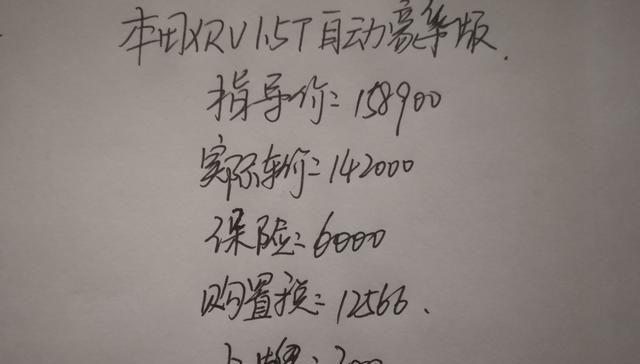 本田XRV1.5T自动豪华版.
指导价:158900
实际车价:142000
保险:6000
购置税:12566.